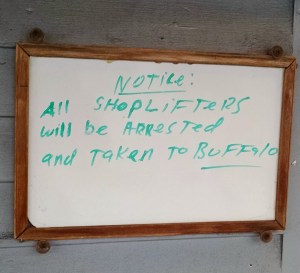 NOTICE:
All SHOPLIFTERS
will be ARRESTED
and TAKEN TO BUFFAlo